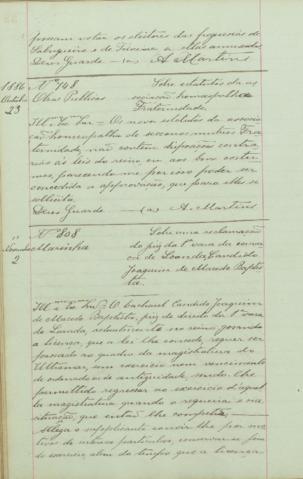 possam votar os eleitores das freguesias de
Salvaguiro e de Teixeira a ellas annexadas
Deus Guarde — (a) A. Martins
1886
Outubro
23
Nº 748
Obras Publicas
Sobre estatutos da as
sociação homeopatha
Fraternidade
Illmº e Exmº Snr = Os novos estatutos da associa
ção homeopatha de soccorros mutuos Fra
ternidade, não contem disposições contra
rias ás leis do reino, ou aos bons costu
mes, parecendo-me por isso poder ser
concedida a approvação, que para elles se
sollicita.
Deus Guarde — (a) A. Martins
Novembro
2
Nº 808
Marinha
Sobre uma reclamação
do juiz da 1ª vara da comar
ca de Loanda, Candido
Joaquim de Macedo Baptis
ta.
Illmº e Exmº Snr = O bacharel Candido Joaquim
de Macedo Baptista, juiz de direito da 1ª vara
de Loanda, actualmente no reino, gosando
a licença, que a lei lhe concede, requer ser
passado ao quadro da magistratura do
Ultramar, sem exercicio nem vencimento
de ordenado ou de antiguidade, sendo-lhe
permittido regressar ao exercicio d'aquel
la magistratura quando o requeira e na
situação, que então lhe competir.
Allega o supplicante convir-lhe por mo
tivos de interesse particular, conservar-se fora
do exercicio, alem do tempo que a licença